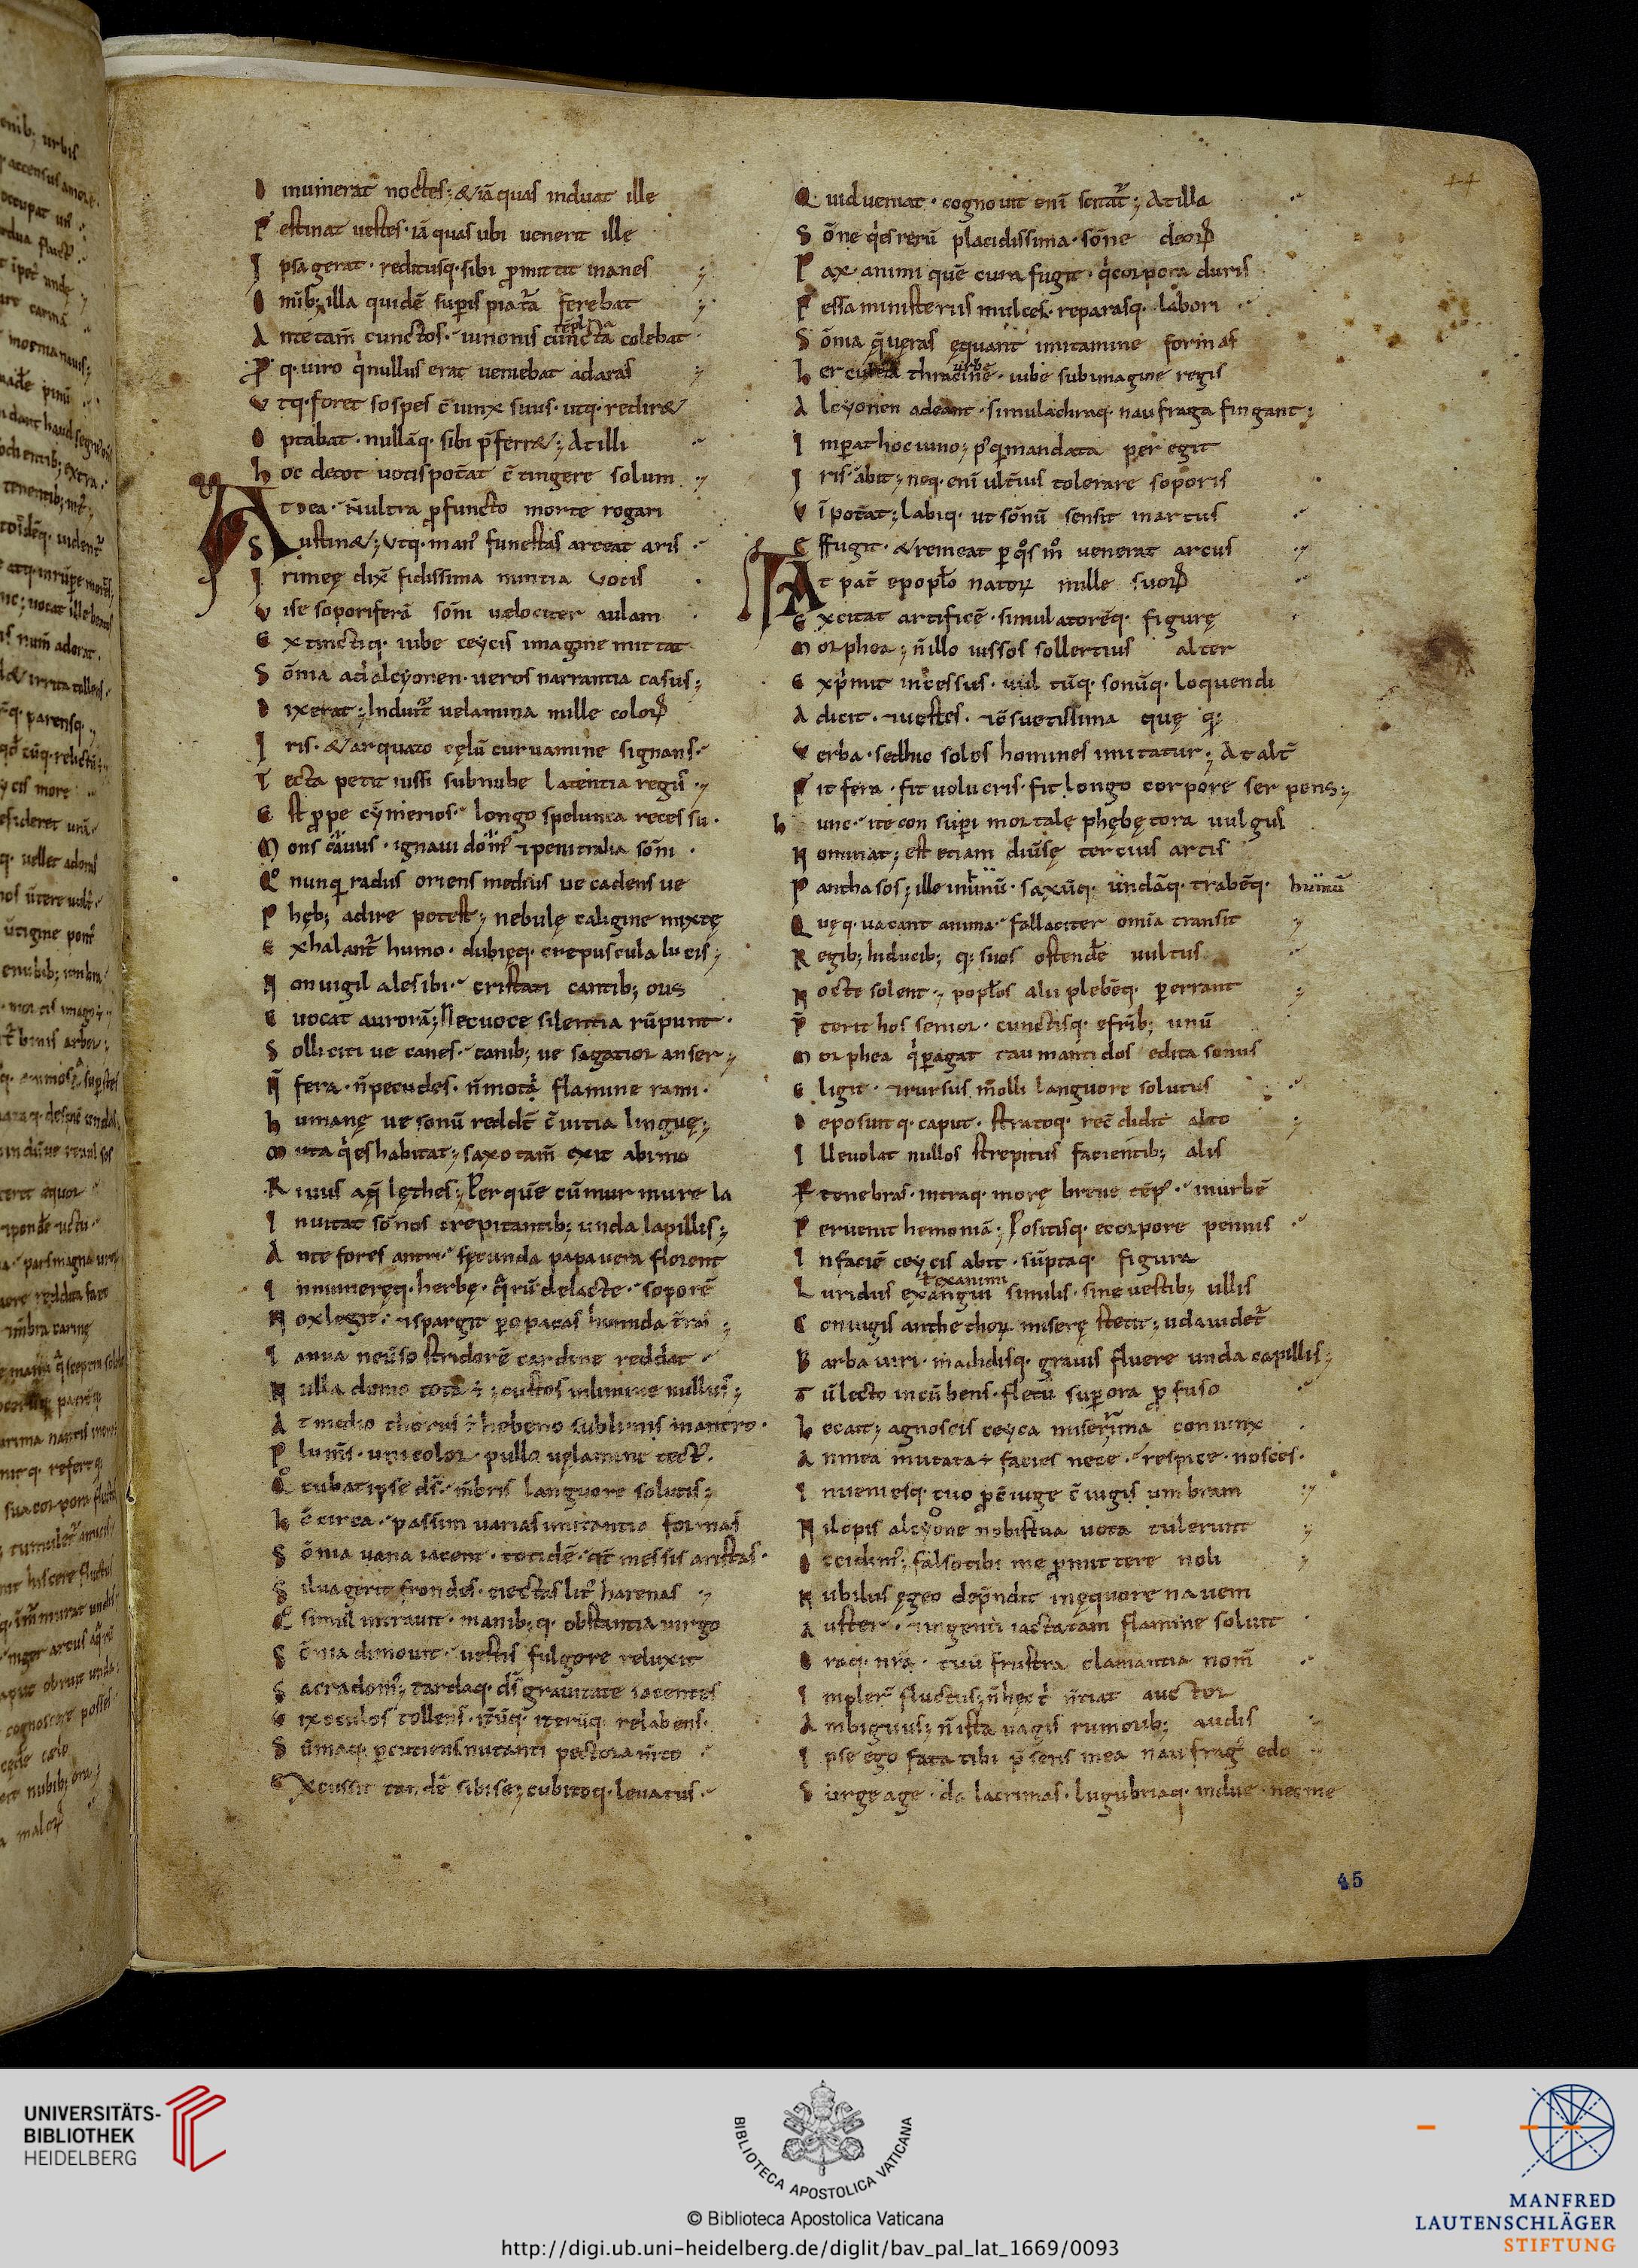 D inumerat noctes; & iā quas induat ille
F estinat uestes · iā quas ubi uenerit ille
I psa gerat · reditusq; sibi promittit inanes
O mib; illa quidē superis pia tura ferebat
A nte tam̄ cunctos · iunonis cuncta colebat
templa
P q uiro qi nullus erat ueniebat ad aras
V tq; foret sospes c̄iunx suus · utq; redir&
O ptabat · nullāq; sibi p̄ferr&; At illi
h oc de tot uotis pot̄at c̄tingere solum
A t dea · n̄ ultra pro functo morte rogari
S ustin&; Vtq; man' funestas arceat aris
I ri meę dix̄ fidissima nuntia Vocis
V ise soporiferā som̄ uelociter aulam
E xtinctiq; iube ceycis imagine mittat
S ōnia ad alcyonen · ueros narrantia casus;
D ixerat; Induit̄ uelamina mille colorum
I ris · & arquato cęlū curuamine signans
T ecta petit iussi sub nube latentia regis
E st prope cȳmerios · longo spelunca recessu ·
M ons cauus · ignaui dom' & penitralia som̄ ·
Q o nunq radiis oriens medius ue cadens ue
P hęb; adire potest; nebulę caligine mixtę
E xhalant̄ humo · dubięq; crepuscula lucis;
N on uigil ales ibi · cristati cantib; oris
E uocat aurorā; Nec uoce silentia rūpunt ·
S olliciti ue canes · canib; ue sagatior anser;
N̄ fera · n̄ pecudes · n̄ mota flamine rami ·
h umanę ue sonū reddt̄ c̄uitia linguę;
M uta qies habitat; saxo tam̄ exit ab imo
R iuus aq̄ lęthes; Per quē cū murmure la
I nuitat sōnos crepitantib; unda lapillis;
A nte fores antri · fęcunda papauera florent
I nnumeręq; herbę · q̄rū de lacte · soporē
N ox legit · & spargit per opacas humida t̄ras;
I anua ne uerso stridorē cardine reddat
N ulla domo tota ē; custos in limine nullus;
A t medio thorus ē hebeno sublimis in antro ·
P lum̄s · unicolor · pullo uęlamine tect' ·
Q o cubat ipse ds̄ · m̄bris languore solutis;
h c̄ circa · passim uarias imitantia formas
S ōnia uana iacent · totidē · qt messis aristas ·
S ilua gerit frondes · eiectas lit' harenas
Q o simul intrauit · manib; q; obstantia uirgo
S ōnia dimouit · uestis fulgore reluxit
S acra dom'; tardaq; ds̄ grauitate iacentes
V ix oculos tollens · iterūq; iterūq; relabens ·
S ūmaq; percutiens nutanti pectora mto
E xcussit tandē sibi se; cubitoq; leuatus
Q uid ueniat · cognouit enī scitat̄; At illa
S ōne qies rerū placidissima · sōne deorum
P ax animi quē cura fugit · qi corpora duris
F essa ministeriis mulces · reparasq; labori
S ōnia q̄ ueras ęquant imitamine formas
h erculea thracinē · iube sub imagine regis
urbe
A lcyonen adeant · simulachraq; naufraga fingant;
I mperat hoc iuno; p'q mandata peregit
I ris · abit; neq; enī ulterius tolerare soporis
V ī pot̄at; labiq; ut sōnū sensit in artus
E ffugit · & remeat per qos mo uenerat arcus
A t pat̄ e poplo natorum mille suorum
E xcitat artificē · simulatorēq; figurę
M orphea; n̄ illo iussos sollertius alter
E xprimit incessus · uultūq; sonūq; loquendi
A dicit · & uestes · & c̄suetissima quę q;
V erba · sed hic solos homines imitatur; At alt̄
F it fera · fit uolucris · fit longo corpore serpens;
h unc · itecon superi mortale phębętora uulgus
N ominat; est etiam diuersę tercius artis
P anthasos; ille in unū · saxūq; undāq; trabēq; humū
Q uęq; uacant anima · fallaciter omīa transit
R egib; hi ducib; q; suos ostendē uultus
N octe solent; poplos alii plebēq; pererrant
P̄ terit hos senior · cunctisq; e frīb; unū
M orphea qi peragat taumantidos edita sonus
E ligit · & rursus molli languore solutus
D eposuitq; caput · stratoq; rec̄didit alto
I lle uolat nullos strepitus facientib; alis
P tenebras · intraq; morę breue tēp' · in urbē
P eruenit hemoniā; Positisq; e corpore pennis
I n faciē ceycis abit · sūptaq; figura
L uridus exangui similis · sine uestib; ullis
t exanimi
C oniugis ante thorum miserę stetit; uda uidet̄
B arba uiri · madidisq; grauis fluere unda capillis;
T ū lecto incūbens · fletu super ora profuso
h ec ait; agnoscis ceyca miserrima coniunx
A n mea mutata ē facies nece · respice · nosces ·
I nueniesq; tuo pro c̄iuge c̄iugis umbram
N il opis alcyone nobis tua uota tulerunt
O ccidim'; falso tibi me promittere noli
N ubilus ęgeo depn̄dit in ęquore nauem
A uster · & ingenti iactatam flamine soluit
O raq; nr̄a · tuū frustra clamantia nom̄
I mpler̄ fluctus; n̄ hęc t' n̄tiat auctor
A mbiguus; n̄ ista uagis rumorib; audis
I pse ego fata tibi p̄sens mea naufrag' edo
S urge age · da lacrimas · lugubriaq; indue · nec me
44
45
UNIVERSITÄTS-
BIBLIOTHEK
HEIDELBERG
BIBLIOTECA APOSTOLICA VATICANA
© Biblioteca Apostolica Vaticana
http://digi.ub.uni-heidelberg.de/diglit/bav_pal_lat_1669/0093
MANFRED
LAUTENSCHLÄGER
STIFTUNG